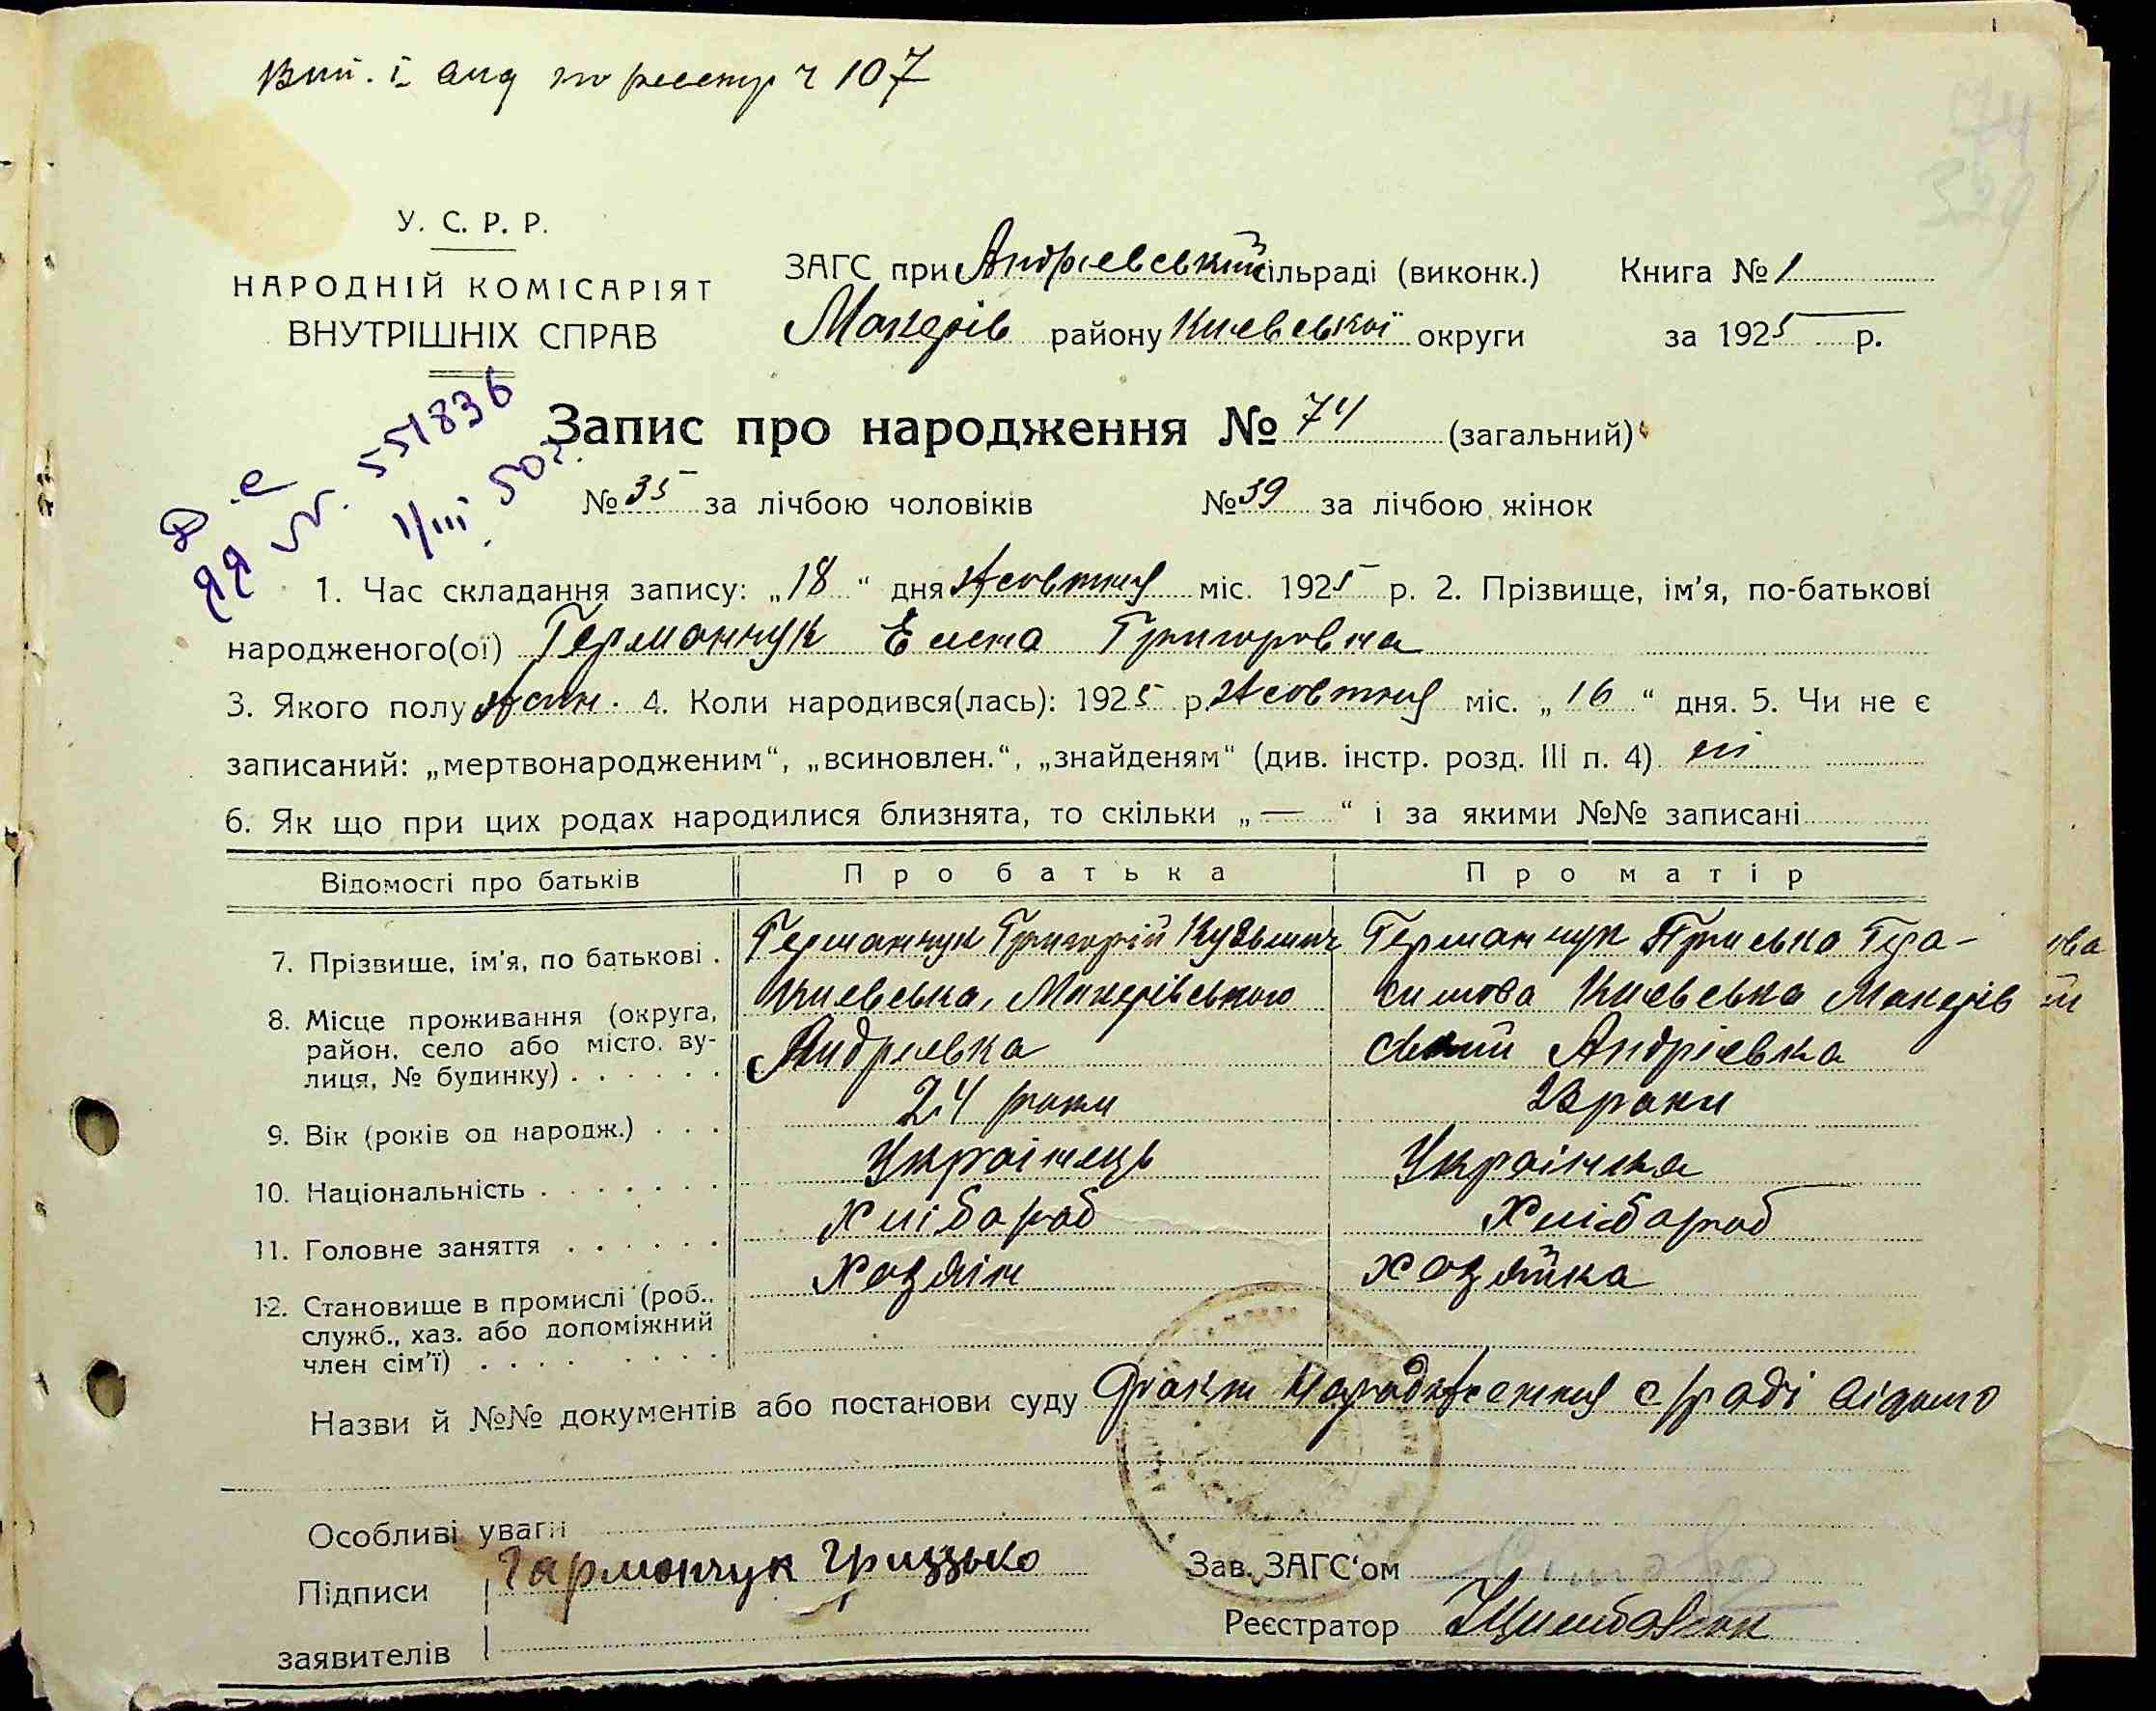 по реестр ч 107
74
329
У. С. Р. Р.
НАРОДНІЙ КОМІСАРІЯТ
ВНУТРІШНІХ СПРАВ
ЗАГС при Андріевський сільраді (виконк.)
Книга № 1
Макарів району Киевської округи
за 1925 р.
№ 551836
1/III 50 р.
Запис про народження № 74 (загальний)
№ 35 за лічбою чоловіків № 39 за лічбою жінок
1. Час складання запису: „18" дня Жовтня міс. 1925 р. 2. Прізвище, ім'я, по-батькові
народженого(ої) Германчук Елена Григоровна
3. Якого полу жін. 4. Коли народився(лась): 1925 р. Жовтня міс. „16" дня. 5. Чи не є
записаний: „мертвонародженим", „всиновлен.", „знайденям" (див. інстр. розд. III п. 4) ні
6. Як що при цих родах народилися близнята, то скільки „—" і за якими №№ записані
Відомості про батьків Про батька Про матір
7. Прізвище, ім'я, по батькові . Германчук Григорій Кузьмич Германчук Приська Гера-
8. Місце проживання (округа, район, село або місто, вулиця, № будинку) . . . . . . Киевська, Макарівського симова Киевська Макарів
Андріевка ський Андріевка
9. Вік (років од народж.) . . . 24 роки 23 роки
10. Національність . . . . . . . Українець Українка
11. Головне заняття . . . . . . Хлібороб Хлібороб
12. Становище в промислі (роб., служб., хаз. або допоміжний член сім'ї) . . . . . . . . Хозяін хозяйка
Назви й №№ документів або постанови суду Факт народження с/раді відомо
Особливі уваги
Підписи Гармончук Грицько
Зав. ЗАГС'ом
Реєстратор
заявителів